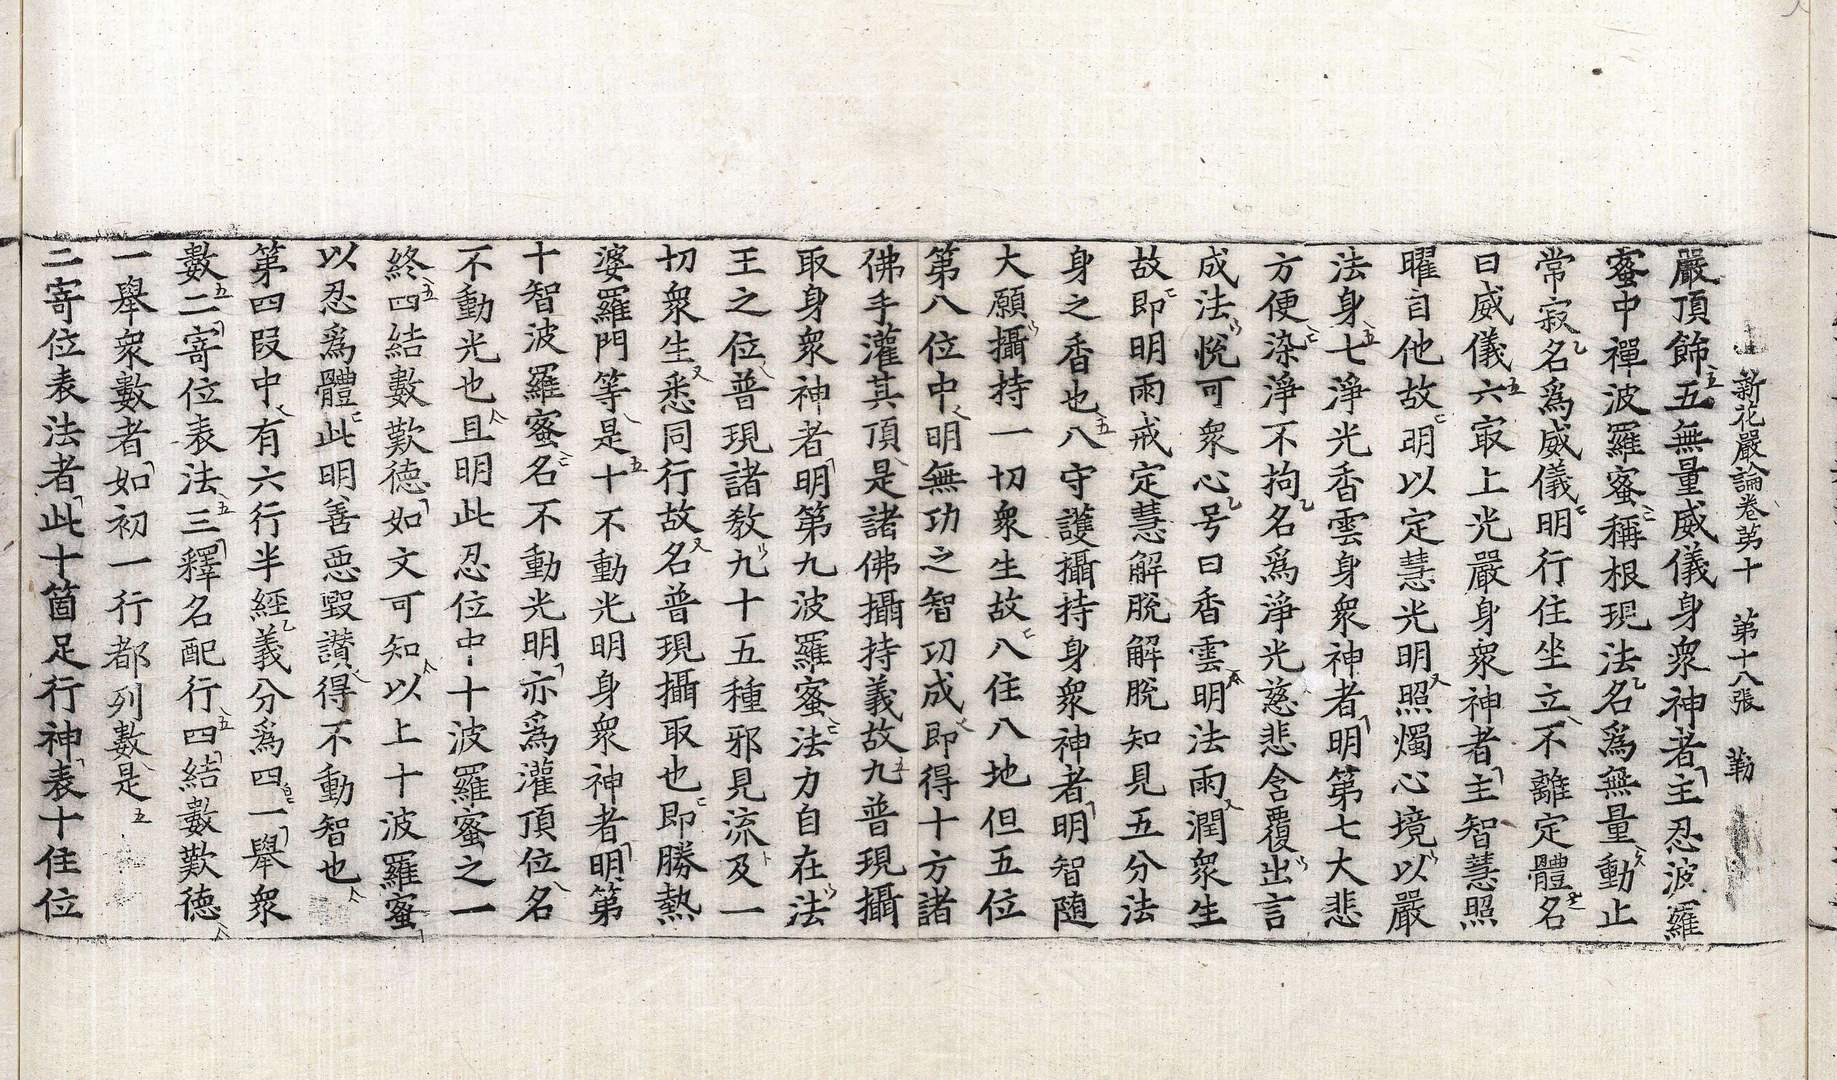 新花嚴論卷第十 第十八張 勒
嚴頂飾五無量威儀身衆神者主忍波羅
蜜中禪波羅蜜稱根現法名爲無量動止
常寂名爲威儀明行住坐立不離定體名
曰威儀六㝡上光嚴身衆神者主智慧照
曜自他故明以定慧光明照燭心境以嚴
法身七淨光香雲身衆神者明第七大悲
方便染淨不拘名爲淨光慈悲含覆出言
成法悅可衆心号曰香雲明法雨潤衆生
故即明雨戒定慧解脫解脫知見五分法
身之香也八守護攝持身衆神者明智随
大願攝持一切衆生故八住八地但五位
第八位中明無功之智功成即得十方諸
佛手灌其頂是諸佛攝持義故九普現攝
取身衆神者明第九波羅蜜法力自在法
王之位普現諸教九十五種邪見流及一
切衆生悉同行故名普現攝取也即勝熱
婆羅門等是十不動光明身衆神者明第
十智波羅蜜名不動光明亦爲灌頂位名
不動光也且明此忍位中十波羅蜜之一
終四結數歎德如文可知以上十波羅蜜
以忍爲體此明善惡毀讃得不動智也
第四段中有六行半經義分爲四一舉衆
數二寄位表法三釋名配行四結數歎德
一舉衆數者如初一行都列數是
二寄位表法者此十箇足行神表十住位